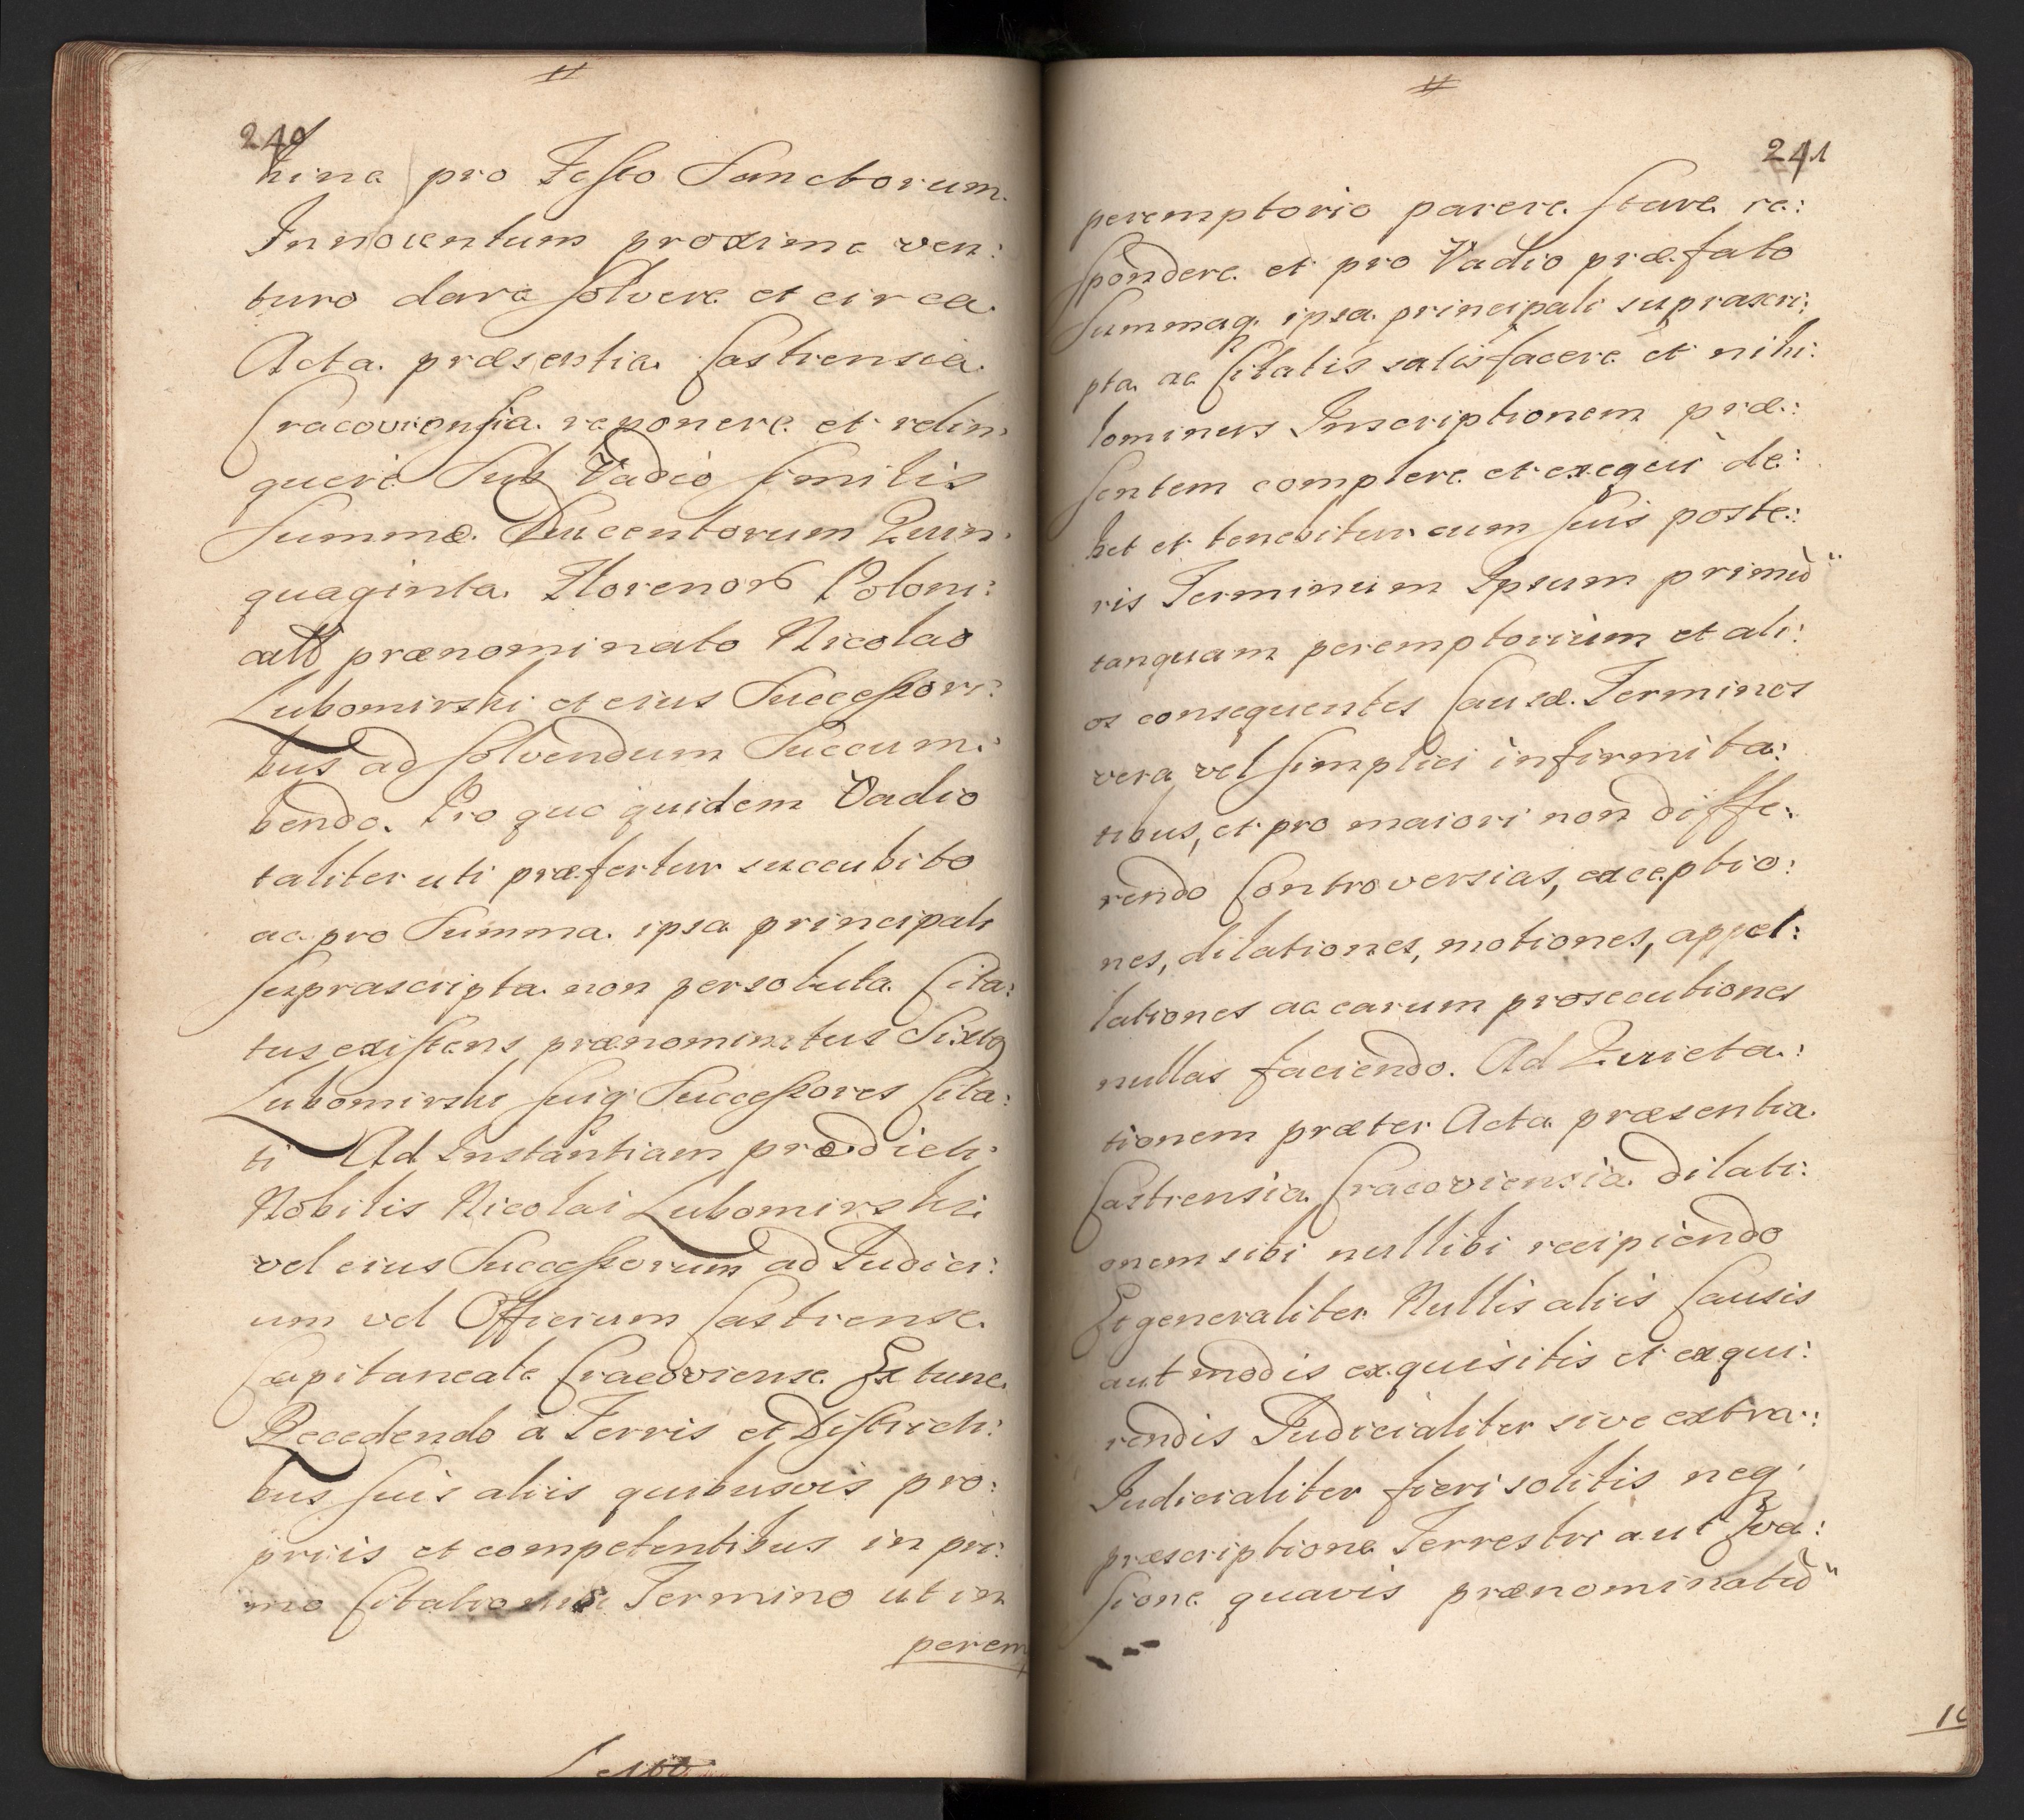 240
hina pro Festo Sanctorum
Innocentum proxime ven:
turo dare solvere et circa
Acta præsentia Castrensia
Cracoviensia reponere et relin:
quere Sub Vadio similis
Summæ Ducentorum Quin:
quaginta Florenor Poloni:
prænominato Nicolao
Lubomirski et eius Successori:
bus ad solvendum Succum:
bendo. Pro quo quidem Vadio
taliter uti præfertur succubito
ac pro Summa ipsa principali
suprascripta non persoluta Cita:
tus existens prænominatus Sixtus
Lubomirski suiq Successores Cita:
ti Ad Instantiam prædicti
Nobilis Nicolai Lubomirski
vel eius Successorum ad Judici:
um vel Officium Castrense
Capitaneale Cracoviense Ex tunc
Recedendo à Terris et Districti:
bus suis aliis quibusvis pro:
priis et competentibus in pri:
mo Citationis Termino ut in
perem
241
peremptorio parere stare re:
spondere et pro Vadio præfato
Summaq ipsa principali suprascri:
pta ac Citatis satisfacere et nihi:
lominus Inscriptionem præ:
sentem complere et exequi de:
bet et tenebitur cum suis poste:
ris Terminum Ipsum primū
tanquam peremptorium et ali:
os consequentes Causæ Terminos
vera vel simplici infirmita:
tibus, et pro maiori non diffe:
rendo Controversias, exceptio:
nes, dilationes, motiones, appel:
lationes ac earum prosecutiones
nullas faciendo. Ad Quieta:
tionem præter Acta præsentia
Castrensia Cracoviensia dilati:
onem sibi nullibi recipiendo
Et generaliter Nullis aliis Causis
aut modis exquisitis et exqui:
rendis Judicialiter sive extra:
Judicialiter fieri solitis neq
præscriptione Terrestri aut Eva:
sione quavis prænominatū